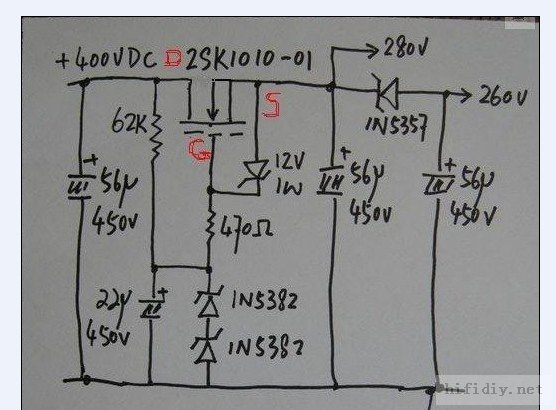 +400VDC D 2SK1010-01
280V
260V
S
62K
G
1N5357
12V
1W
+
56μ
450V
+
56μ
450V
+
56μ
450V
470Ω
+
22μ
450V
1N5382
1N5382
hifidiy.net